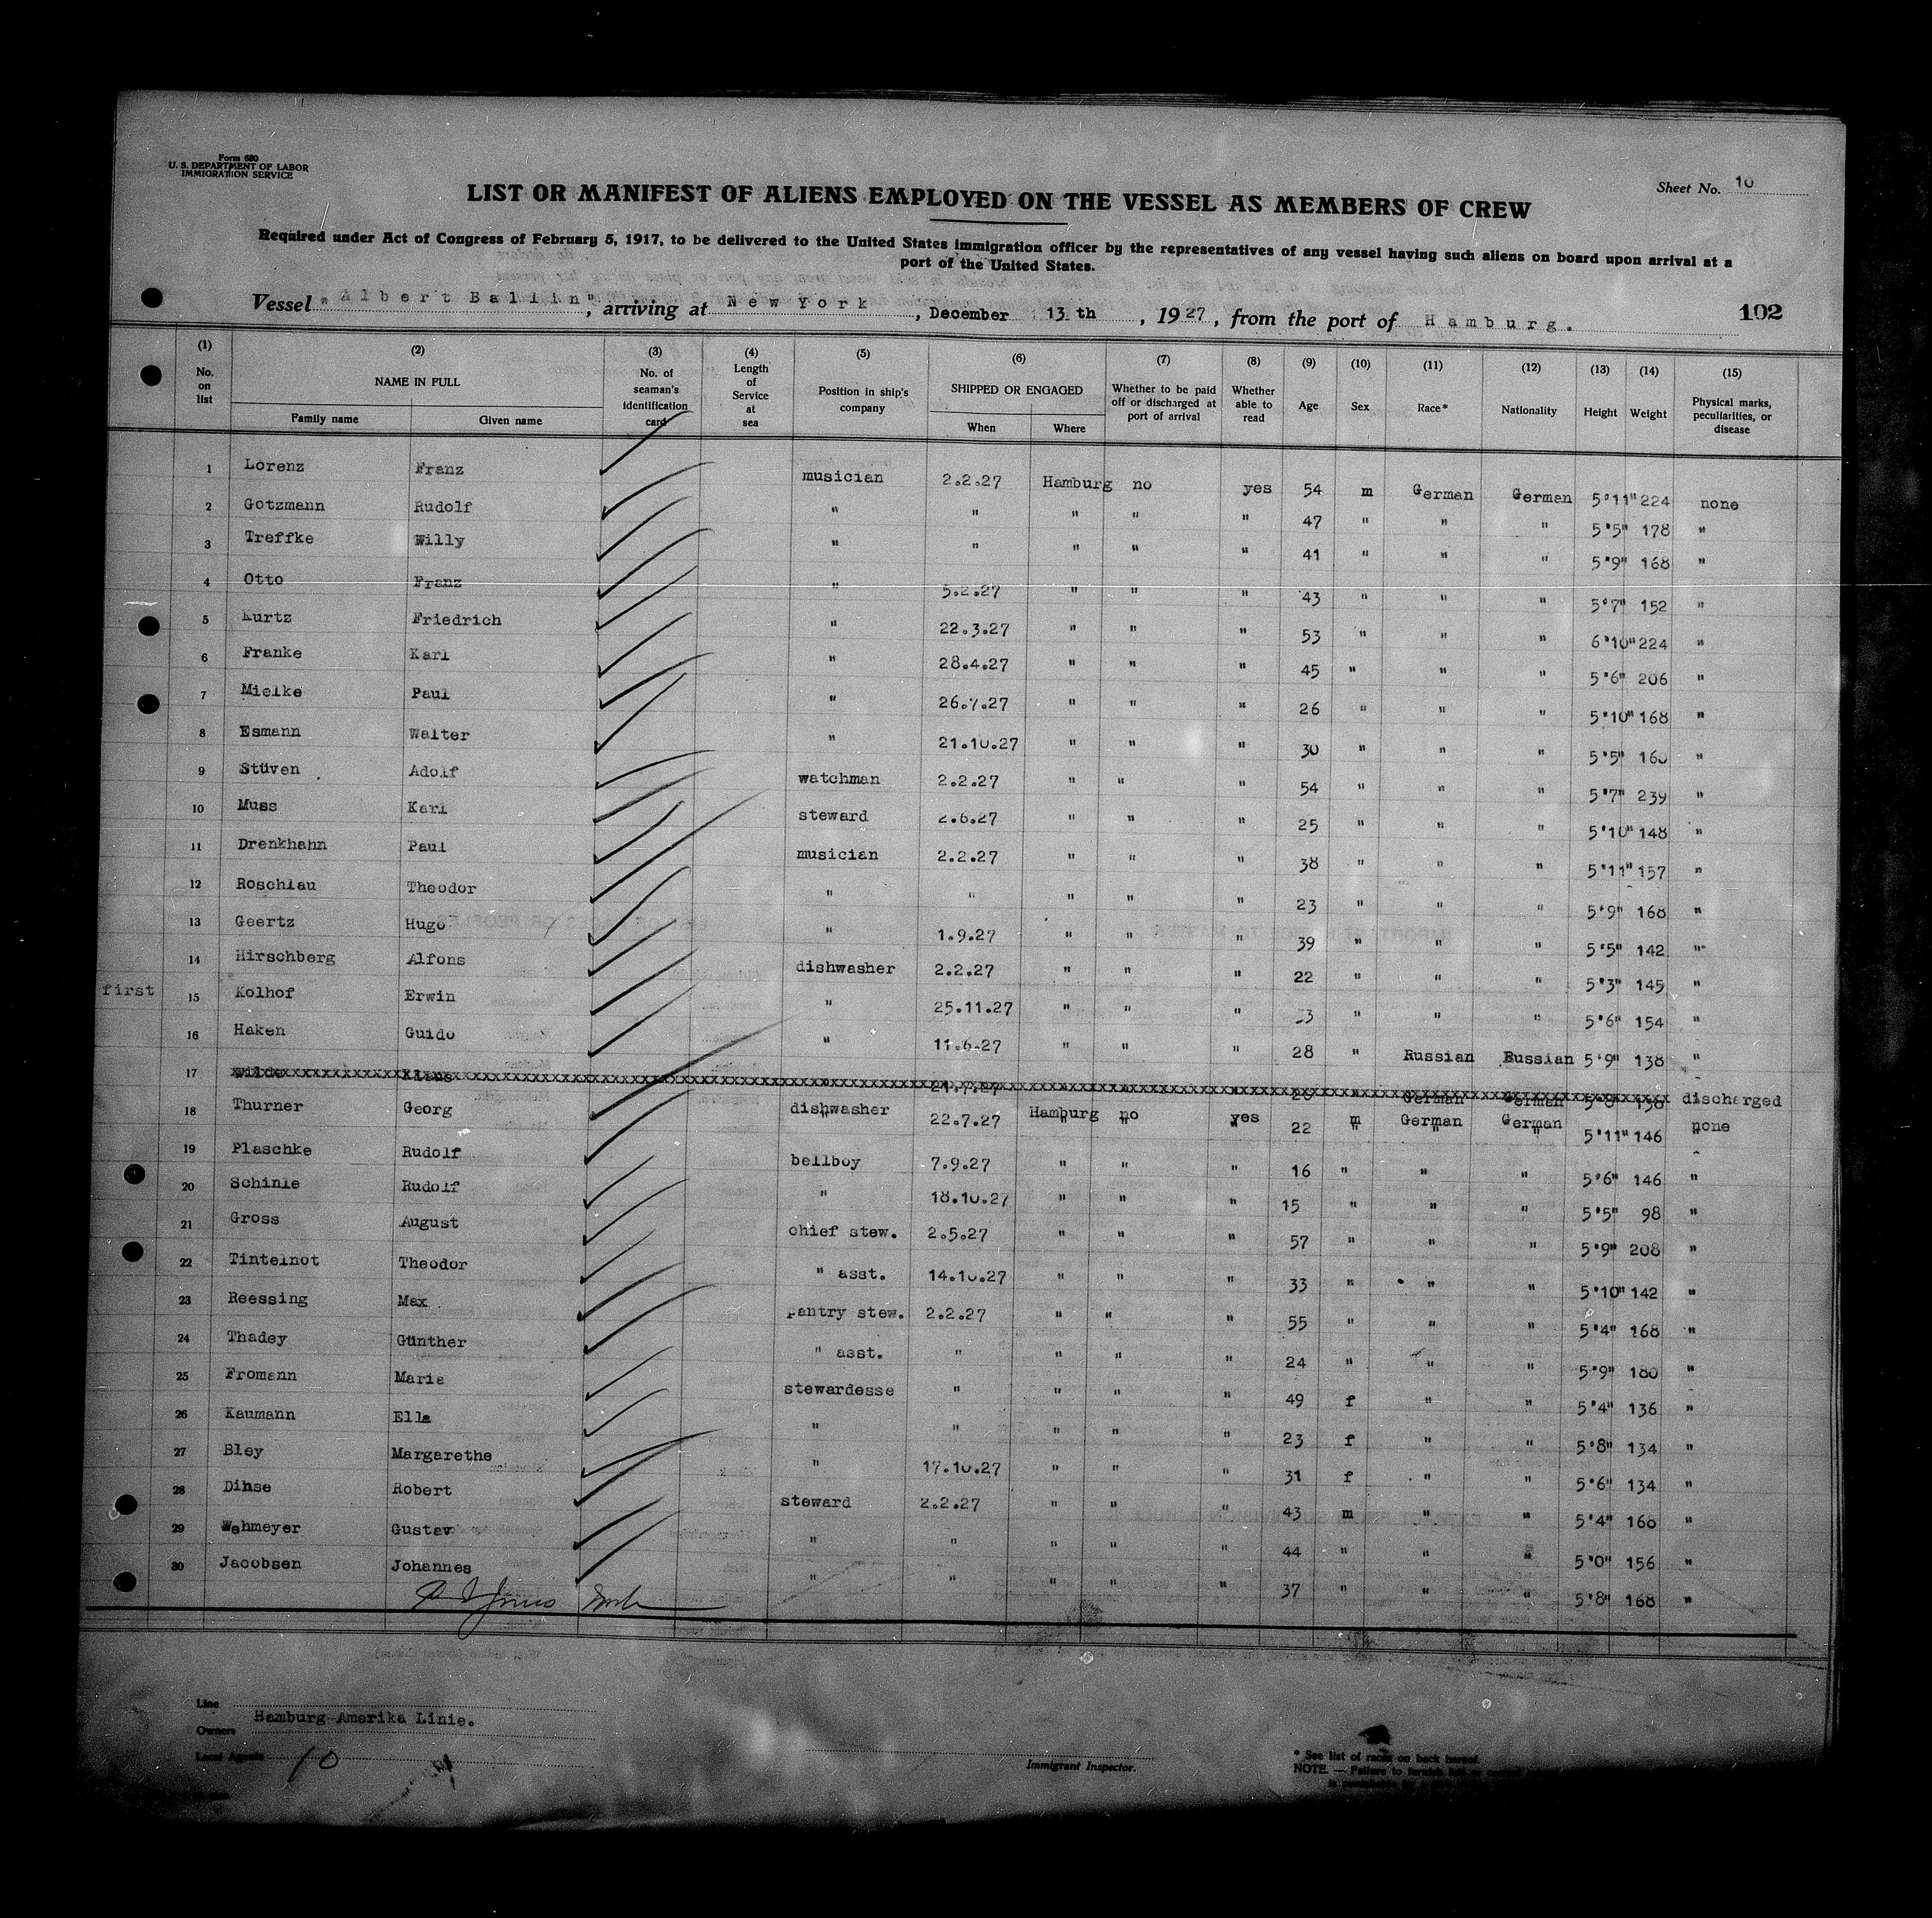 Form 680
U. S. DEPARTMENT OF LABOR
IMMIGRATION SERVICE
Sheet No. 10
LIST OR MANIFEST OF ALIENS EMPLOYED ON THE VESSEL AS MEMBERS OF CREW
Required under Act of Congress of February 5, 1917, to be delivered to the United States immigration officer by the representatives of any vessel having such aliens on board upon arrival at a
port of the United States.
Vessel "Albert Ballin", arriving at New York, December 13th, 1927, from the port of Hamburg. 102
(1) (2) (3) (4) (5) (6) (7) (8) (9) (10) (11) (12) (13) (14) (15)
No. on list NAME IN FULL Family name Given name No. of seaman's identification card Length of Service at sea Position in ship's company SHIPPED OR ENGAGED When Where Whether to be paid off or discharged at port of arrival Whether able to read Age Sex Race* Nationality Height Weight Physical marks, peculiarities, or disease
1 Lorenz Franz musician 2.2.27 Hamburg no yes 54 m German German 5'11" 224 none
2 Gotzmann Rudolf " " " " " 47 " " " 5'5" 178 "
3 Treffke Willy " " " " " 41 " " " 5'9" 168 "
4 Otto Franz " 5.2.27 " " " 43 " " " 5'7" 152 "
5 Kurtz Friedrich " 22.3.27 " " " 53 " " " 6'10" 224 "
6 Franke Karl " 28.4.27 " " " 45 " " " 5'6" 206 "
7 Mielke Paul " 26.7.27 " " " 26 " " " 5'10" 168 "
8 Esmann Walter " 21.10.27 " " " 30 " " " 5'5" 160 "
9 Stüven Adolf watchman 2.2.27 " " " 54 " " " 5'7" 239 "
10 Muss Karl steward 2.6.27 " " " 25 " " " 5'10" 148 "
11 Drenkhahn Paul musician 2.2.27 " " " 38 " " " 5'11" 157 "
12 Roschlau Theodor " " " " " 23 " " " 5'9" 168 "
13 Geertz Hugo " 1.9.27 " " " 39 " " " 5'5" 142 "
14 Hirschberg Alfons dishwasher 2.2.27 " " " 22 " " " 5'3" 145 "
first 15 Kolhof Erwin " 25.11.27 " " " " " " 5'6" 154 "
16 Haken Guido " 11.6.27 " " " 28 " Russian Russian 5'9" 138 "
17 Wilde Klaus 21.7.27 German German discharged
18 Thurner Georg dishwasher 22.7.27 Hamburg no yes 22 m German German 5'11" 146 none
19 Plaschke Rudolf bellboy 7.9.27 " " " 16 " " " 5'6" 146 "
20 Schinle Rudolf " 18.10.27 " " " 15 " " " 5'5" 98 "
21 Gross August chief stew. 2.5.27 " " " 57 " " " 5'9" 208 "
22 Tintelnot Theodor " asst. 14.10.27 " " " 33 " " " 5'10" 142 "
23 Reessing Max pantry stew. 2.2.27 " " " 55 " " " 5'4" 168 "
24 Thadey Günther " asst. " " " " 24 " " " 5'9" 180 "
25 Fromann Marie stewardesse " " " " 49 f " " 5'4" 136 "
26 Kaumann Ella " " " " " 23 f " " 5'8" 134 "
27 Bley Margarethe " 17.10.27 " " " 31 f " " 5'6" 134 "
28 Dihse Robert steward 2.2.27 " " " 43 m " " 5'4" 168 "
29 Wehmeyer Gustav " " " " " 44 " " " 5'0" 156 "
30 Jacobsen Johannes " " " " " 37 " " " 5'8" 168 "
Line
Owners Hamburg-Amerika Linie.
Local Agents 10
Immigrant Inspector.
* See list of races on back hereof.
NOTE. — Failure to furnish